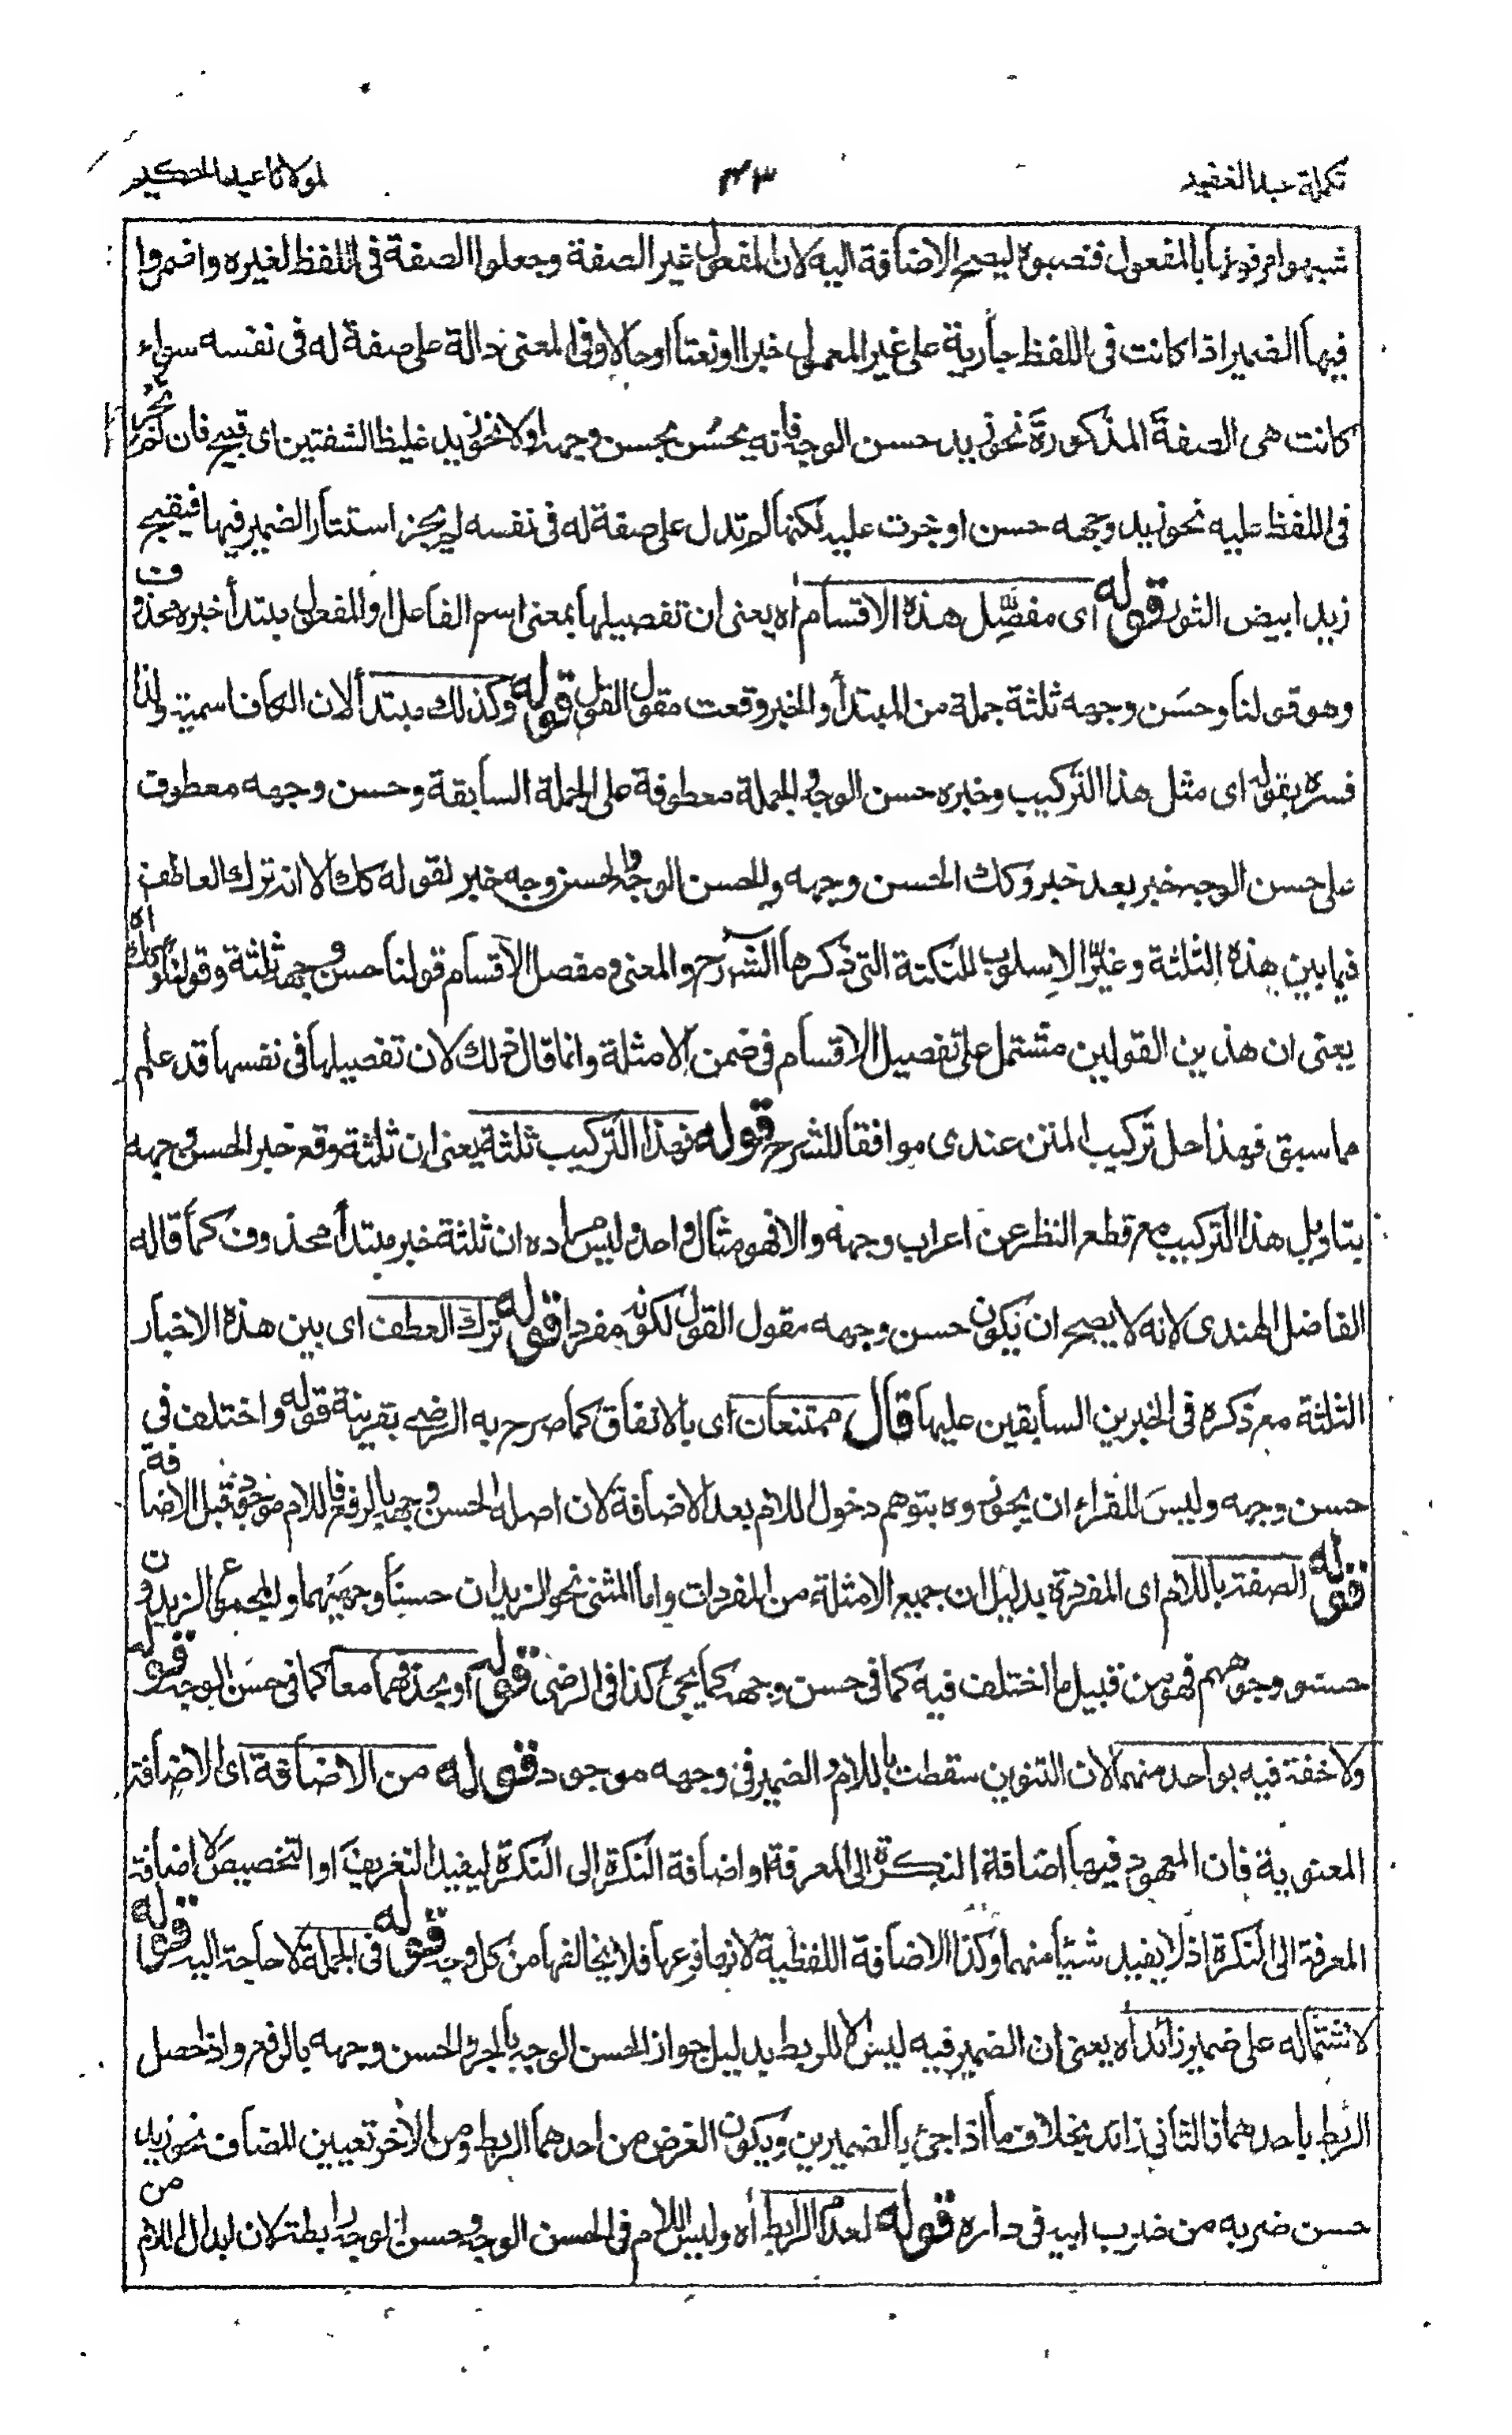 تكملة عبد الغفور
٣٣
لمولانا عبد الحكيم
شبهوا مرفوعها بالمفعول فنصبوه ليصح الاضافة اليه لان المفعول غير الصفة وجعلوا الصفة فى اللفظ لغيره واضمروا
فيها الضمير اذا كانت فى اللفظ جارية على غير المعمول خبرا او نعتا او حالا وفى المعنى دالة على صفة له فى نفسه سواء
كانت هى الصفة المذكورة نحو زيد حسن الوجه فانه يحسن بحسن وجهه او لا نحو زيد غليظ الشفتين اى قبيح فان لم تجر
فى اللفظ عليه نحو زيد وجهه حسن او جرت عليه لكنها لم تدل على صفة له فى نفسه لم يجز استتار الضمير فيها فيقبح
زيد ابيض الثور قوله اى مفصل هذه الاقسام اه يعنى ان تفصيلها بمعنى اسم الفاعل او المفعول مبتدأ خبره محذوف
وهو قولنا وحسن وجهه ثلثة جملة من المبتدأ والخبر وقعت مقول القول قوله وكذلك مبتدأ لان الكاف اسمية ولذا
فسره بقوله اى مثل هذا التركيب وخبره حسن الوجه والجملة معطوفة على الجملة السابقة وحسن وجهه معطوف
على حسن الوجه خبر بعد خبر وكك الحسن وجهه والحسن الوجه والحسن وجه خبر لقوله كك الا انه ترك العاطف
فيما بين هذه الثلثة وغيّر الاسلوب للنكتة التى ذكرها الشرح والمعنى ومفصل الاقسام قولنا حسن وجهه ثلثة وقولنا وكك اه
يعنى ان هذين القولين مشتمل على تفصيل الاقسام فى ضمن الامثلة وانما قال ذلك لان تفصيلها فى نفسها قد علم
مما سبق فهذا حل تركيب المتن عندى موافقا للشرح قوله فهذا التركيب ثلثة يعنى ان ثلثة وقع خبر الحسن وجهه
بتاويل هذا التركيب مع قطع النظر عن اعراب وجهه والا فهو مثال واحد وليس مراده ان ثلثة خبر مبتدأ محذوف كما قاله
الفاضل الهندى لانه لا يصح ان يكون حسن وجهه مقول القول لكونه مفردا قوله ترك العطف اى بين هذه الاخبار
الثلثة مع ذكره فى الخبرين السابقين عليها قال ممتنعان اى بالاتفاق كما صرح به الرضى بقرينة قوله واختلف فى
حسن وجهه وليس للفراء ان يجوزه بتوهم دخول اللام بعد الاضافة لان اصله الحسن وجهه بالرفع فاللام موجودة قبل الاضافة
قوله الصفة باللام اى المفردة بدليل ان جميع الامثلة من المفردات واما المثنى نحو الزيدان حسنا وجهيهما والمجموع الزيدون
حسنو وجوههم فهو من قبيل ما اختلف فيه كما فى حسن وجهه كما يجئ كذا فى الرضى قوله او بحذفهما معا كما فى حسن الوجه قوله
ولا خفة فيه بواحد منهما لان التنوين سقطت باللام والضمير فى وجهه موجود قوله من الاضافة اى الاضافة
المعنوية فان المعهود فيها اضافة النكرة الى المعرفة او اضافة النكرة الى النكرة ليفيد التعريف او التخصيص لا اضافة
المعرفة الى النكرة اذ لا يفيد شيئا منهما وكذا الاضافة اللفظية لانها فرعها فلا يخالفها من كل وجه قوله فى الجملة لا حاجة اليه قوله
لاشتماله على ضمير زائد اه يعنى ان الضمير فيه ليس الا للربط بدليل جواز الحسن الوجه بالجر والحسن وجهه بالرفع واذ حصل
الربط باحدهما فالثانى زائد بخلاف ما اذا جئ بالضميرين ويكون الغرض من احدهما الربط ومن الاخر تعيين المضاف نحو زيد
حسن ضربه من ضرب ابيه فى داره قوله لعدم الرابط اه وليس اللام فى الحسن الوجه وحسن الوجه رابطة لان ابدال اللام من